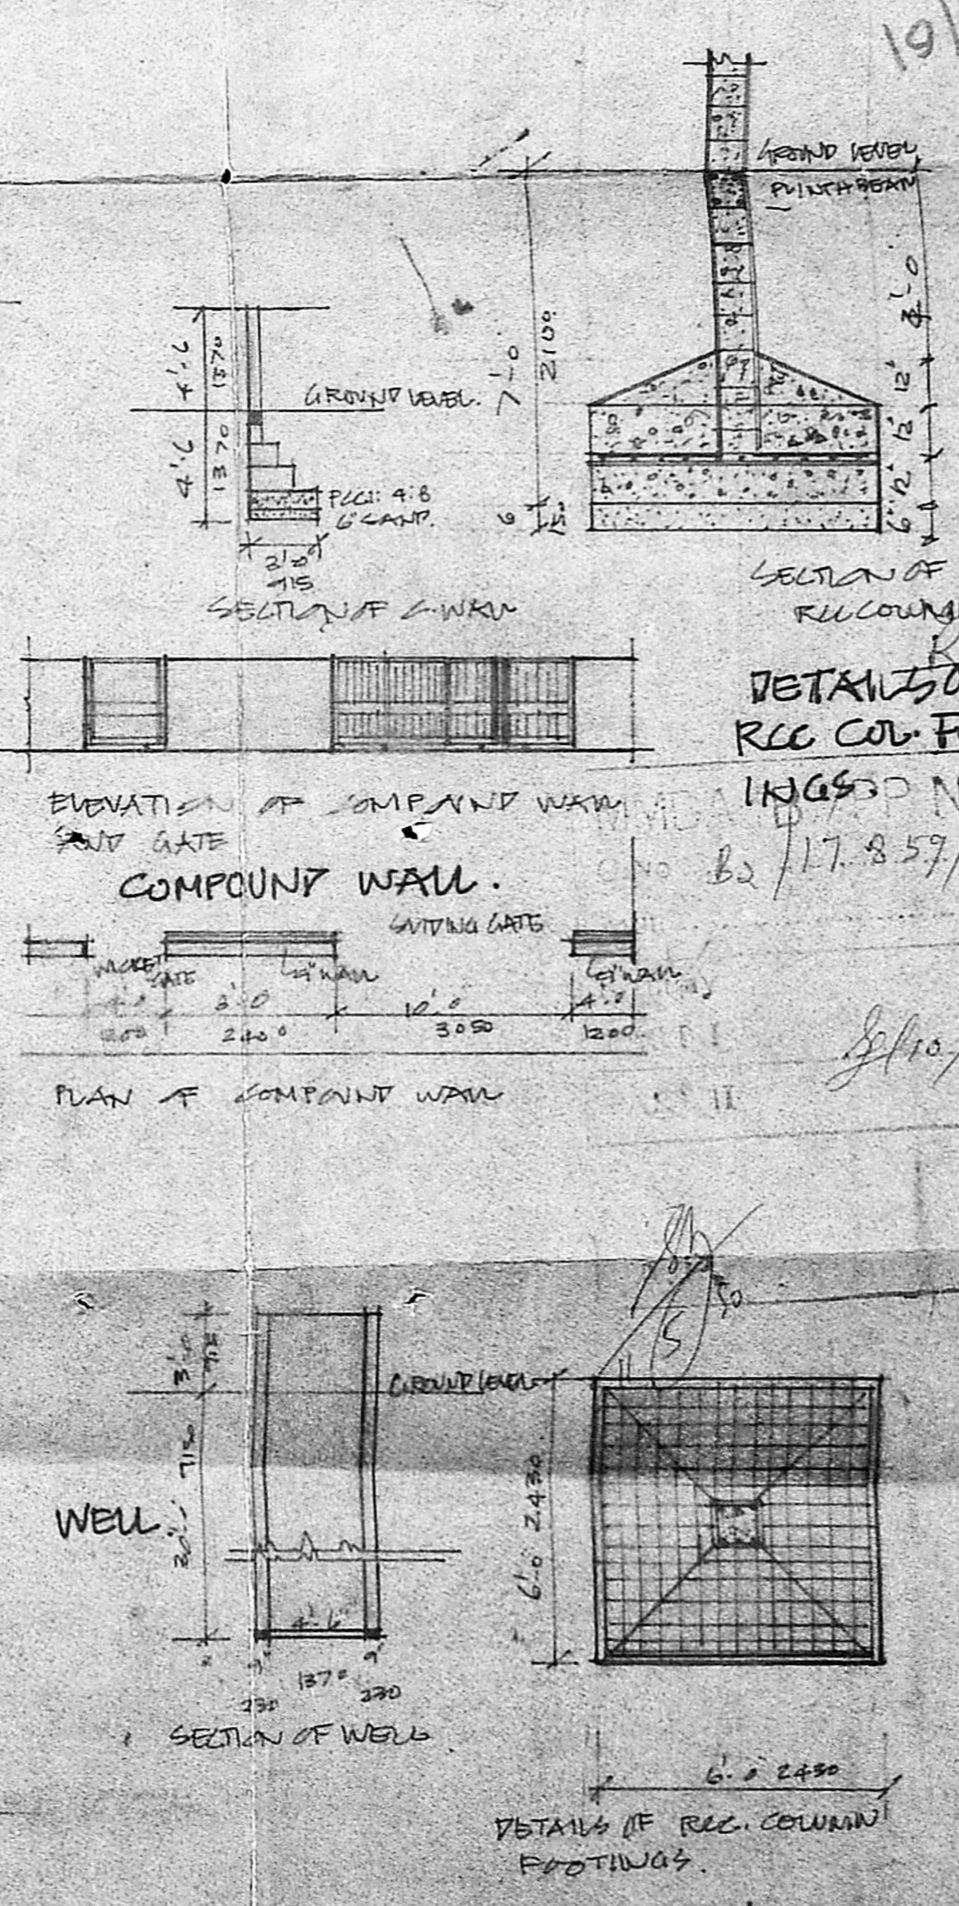 19/
GROUND LEVEL
PLINTH BEAM
4'-6 1370
GROUND LEVEL.
7'-0 2100
4'-6 1370
12"
12"
12"
6"
PCC 1:4:8
6" SAND.
3'-0"
915
SECTION OF C.WALL
SECTION OF
RCC COLUMN
DETAILS O
RCC COL. F
INGS.
ELEVATION OF COMPOUND WALL
AND GATE
COMPOUND WALL.
B2 /17859/
SLIDING GATE
WICKET
GATE
9" WALL
9" WALL
4'-0 8'-0 10'-0 4'-0
1200 2400 3050 1200
PLAN OF COMPOUND WALL
3'-0 915
GROUND LEVEL
WELL.
30'-0
6'-0 2430
4'-6"
9" 1370 9"
230 230
SECTION OF WELL
6'-0 2430
DETAILS OF RCC. COLUMN
FOOTINGS.